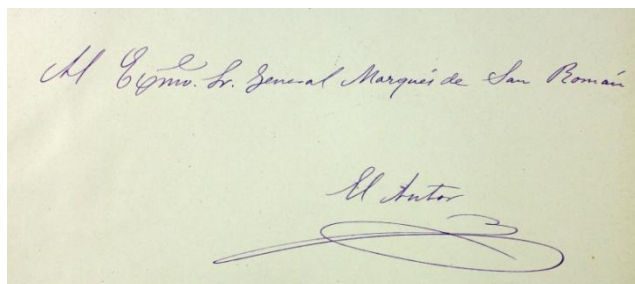 Al Exmo. Sr. General Marqués de San Román
El Autor